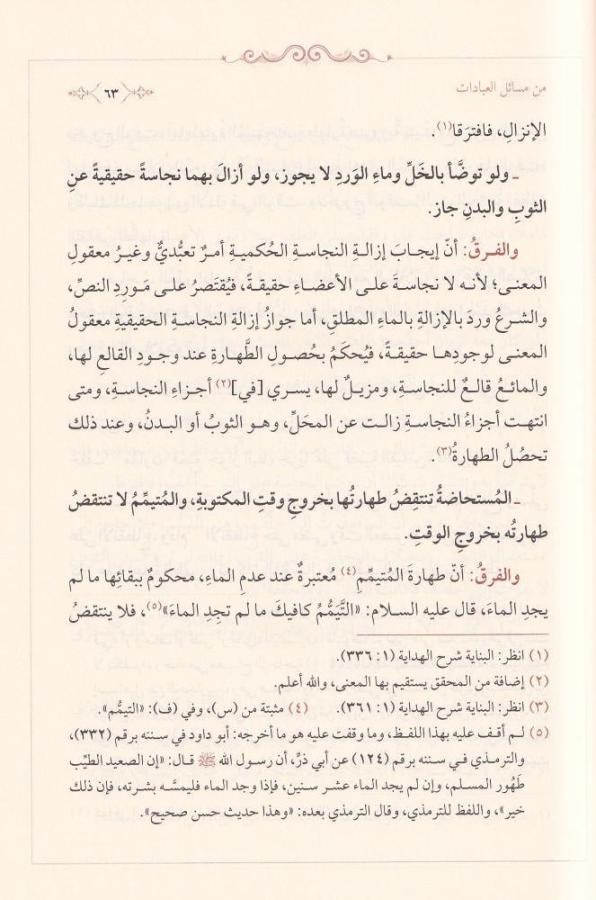 من مسائل العبادات
٦٣
الإنزالِ، فافترَقا(١).
ـ ولو توضَّأ بالخَلِّ وماءِ الوَردِ لا يجوز، ولو أزالَ بهما نجاسةً حقيقيةً عنِ
الثوبِ والبدنِ جاز.
والفرقُ: أنّ إيجابَ إزالةِ النجاسةِ الحُكميةِ أمرٌ تعبُّديٌّ وغيرُ معقولِ
المعنى؛ لأنه لا نجاسةَ على الأعضاءِ حقيقةً، فيُقتَصَرُ على مَورِدِ النصِّ،
والشرعُ وردَ بالإزالةِ بالماءِ المطلقِ، أما جوازُ إزالةِ النجاسةِ الحقيقيةِ معقولُ
المعنى لوجودِها حقيقةً، فيُحكَمُ بحُصولِ الطَّهارةِ عند وجودِ القالعِ لها،
والمائعُ قالعٌ للنجاسةِ، ومزيلٌ لها، يسري [في](٢) أجزاءِ النجاسةِ، ومتى
انتهت أجزاءُ النجاسةِ زالت عن المحَلِّ، وهو الثوبُ أو البدنُ، وعند ذلك
تحصُلُ الطهارةُ(٣).
ـ المُستحاضةُ تنتقِضُ طهارتُها بخروجِ وقتِ المكتوبةِ، والمتيمِّمُ لا تنتقضُ
طهارتُه بخروجِ الوقتِ.
والفرقُ: أنّ طهارةَ المُتيمِّمِ(٤) مُعتبرةٌ عند عدمِ الماءِ، محكومٌ ببقائِها ما لم
يجدِ الماءَ، قال عليه السلام: «التَّيَمُّمُ كافيكَ ما لم تجِدِ الماءَ»(٥)، فلا ينتقضُ
(١) انظر: البناية شرح الهداية (١: ٣٣٦).
(٢) إضافة من المحقق يستقيم بها المعنى، والله أعلم.
(٣) انظر: البناية شرح الهداية (١: ٣٦١). (٤) مثبتة من (س)، وفي (ف): «التيمُّم».
(٥) لم أقف عليه بهذا اللفظ، وما وقفت عليه هو ما أخرجه: أبو داود في سننه برقم (٣٣٢)،
والترمذي في سننه برقم (١٢٤) عن أبي ذرٍّ، أن رسول الله ﷺ قال: «إن الصعيد الطيِّب
طَهُور المسلم، وإن لم يجد الماء عشر سنين، فإذا وجد الماء فليمسَّه بشرته، فإن ذلك
خير»، واللفظ للترمذي، وقال الترمذي بعده: «وهذا حديث حسن صحيح».